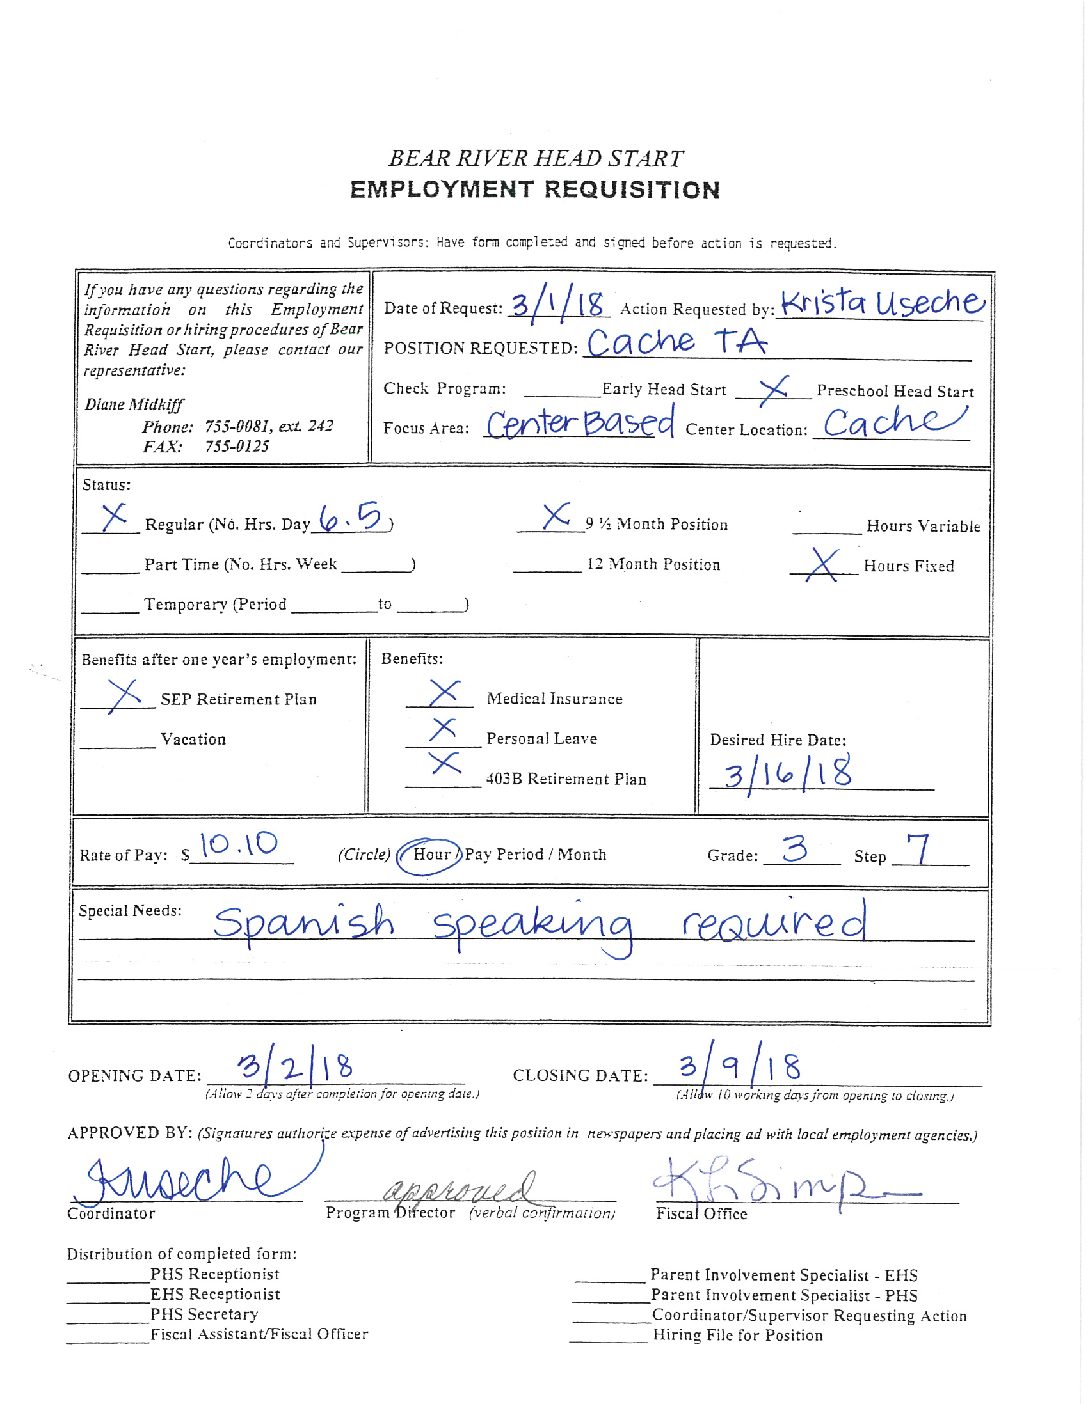 BEAR RIVER HEAD START
EMPLOYMENT REQUISITION
Coordinators and Supervisors: Have form completed and signed before action is requested.
If you have any questions regarding the
information on this Employment
Requisition or hiring procedures of Bear
River Head Start, please contact our
representative:
Diane Midkiff
Phone: 755-0081, ext. 242
FAX: 755-0125
Date of Request: 3/1/18 Action Requested by: Krista Useche
POSITION REQUESTED: Cache TA
Check Program: ______Early Head Start X Preschool Head Start
Focus Area: Center Based Center Location: Cache
Status:
X Regular (No. Hrs. Day 6.5) X 9 ½ Month Position ______ Hours Variable
______ Part Time (No. Hrs. Week ______) ______ 12 Month Position X Hours Fixed
______ Temporary (Period ______ to ______)
Benefits after one year's employment:
X SEP Retirement Plan
______ Vacation
Benefits:
X Medical Insurance
X Personal Leave
X 403B Retirement Plan
Desired Hire Date:
3/16/18
Rate of Pay: $ 10.10 (Circle) Hour / Pay Period / Month Grade: 3 Step 7
Special Needs: Spanish speaking required
OPENING DATE: 3/2/18 CLOSING DATE: 3/9/18
(Allow 2 days after completion for opening date.) (Allow 10 working days from opening to closing.)
APPROVED BY: (Signatures authorize expense of advertising this position in newspapers and placing ad with local employment agencies.)
KUseche approved
Coordinator Program Director (verbal confirmation) Fiscal Office
Distribution of completed form:
______ PHS Receptionist
______ EHS Receptionist
______ PHS Secretary
______ Fiscal Assistant/Fiscal Officer
______ Parent Involvement Specialist - EHS
______ Parent Involvement Specialist - PHS
______ Coordinator/Supervisor Requesting Action
______ Hiring File for Position